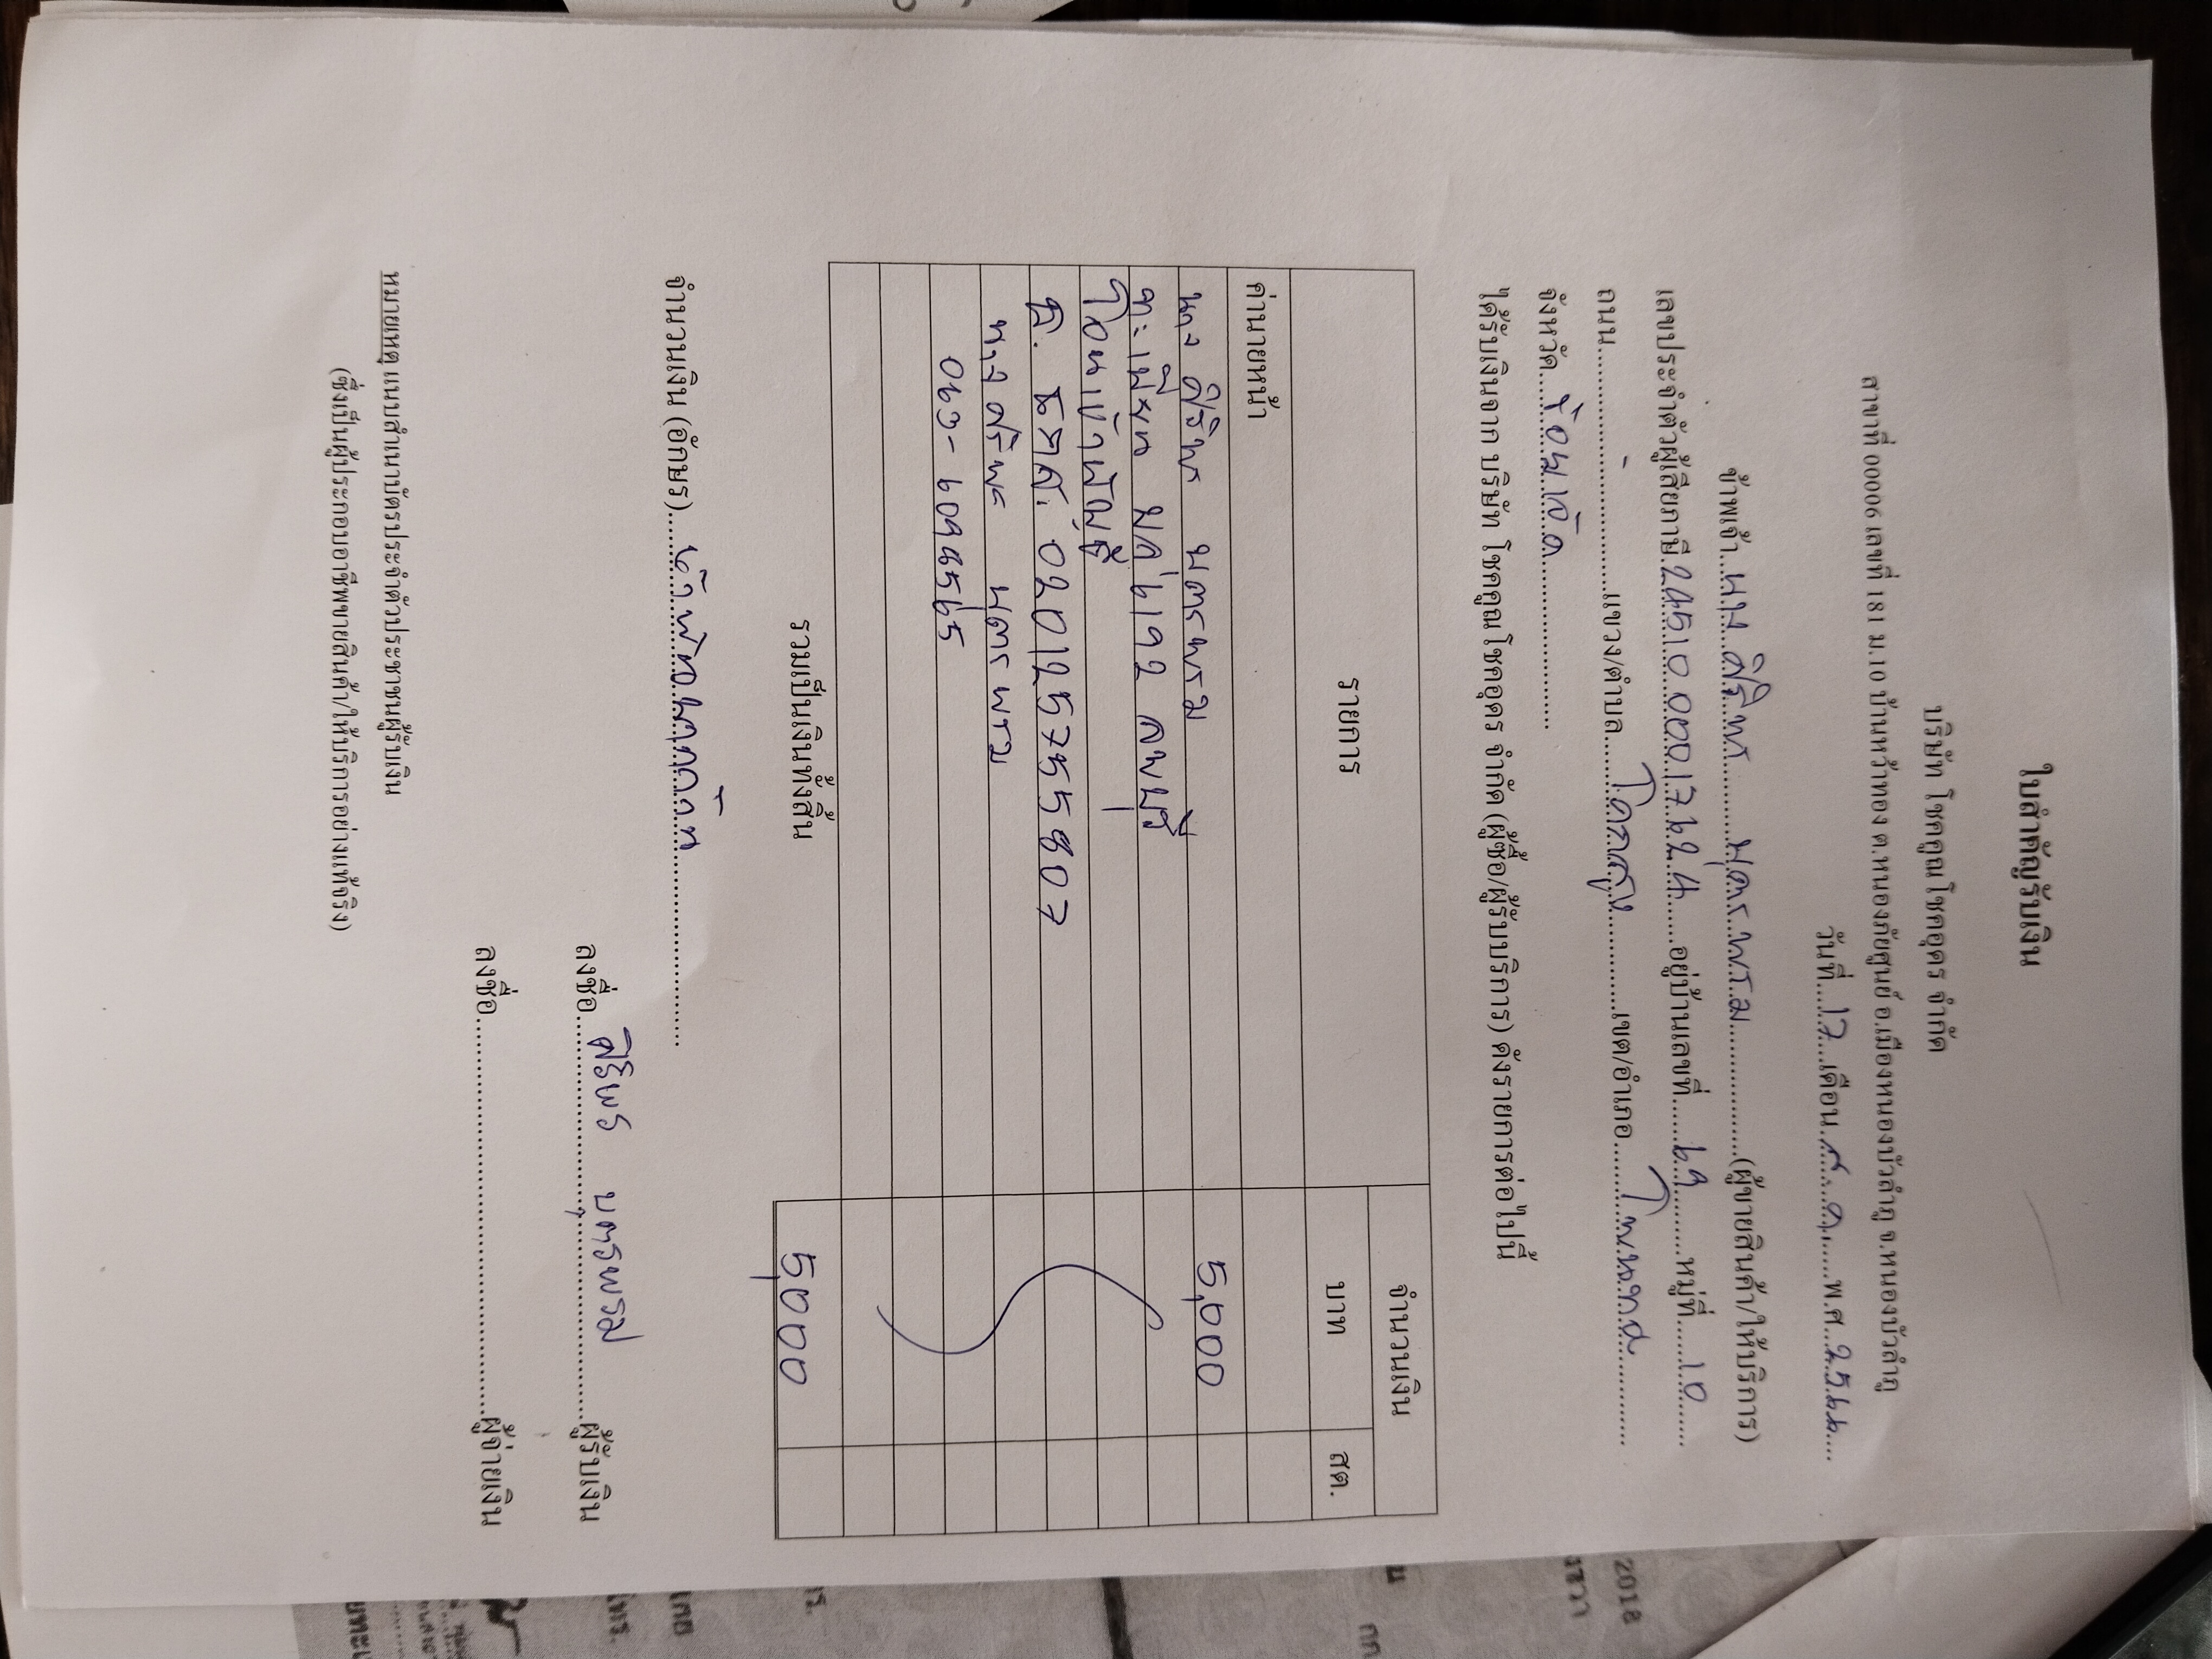 ใบสำคัญรับเงิน
บริษัท โชคคูณโชคอุดร จำกัด
สาขาที่ 00006 เลขที่ 181 ม.10 บ้านหว้าทอง ต.หนองภัยศูนย์ อ.เมืองหนองบัวลำภู จ.หนองบัวลำภู
วันที่ 17 เดือน ต.ค. พ.ศ. 2566
ข้าพเจ้า นาง ศิริพร บุตรพรม (ผู้ขายสินค้า/ให้บริการ)
เลขประจำตัวผู้เสียภาษี อยู่บ้านเลขที่ 69 หมู่ที่ 10
ถนน - แขวง/ตำบล โคกสูง เขต/อำเภอ
จังหวัด ร้อยเอ็ด
ได้รับเงินจาก บริษัท โชคคูณโชคอุดร จำกัด (ผู้ซื้อ/ผู้รับบริการ) ดังรายการต่อไปนี้
รายการ จำนวนเงิน
บาท สต.
ค่านายหน้า
นาง ศิริพร บุตรพรม 5,000
ทะเบียน ลพบุรี
โอนเข้าบัญชี
ธ. ธกส. 020125755807
นาง ศิริพร บุตรพรม
รวมเป็นเงินทั้งสิ้น 5,000
จำนวนเงิน (อักษร) ห้าพันบาทถ้วน
ลงชื่อ ศิริพร บุตรพรม ผู้รับเงิน
ลงชื่อ ผู้จ่ายเงิน
หมายเหตุ แนบสำเนาบัตรประจำตัวประชาชนผู้รับเงิน
(ซึ่งเป็นผู้ประกอบอาชีพขายสินค้า/ให้บริการอย่างแท้จริง)
2018